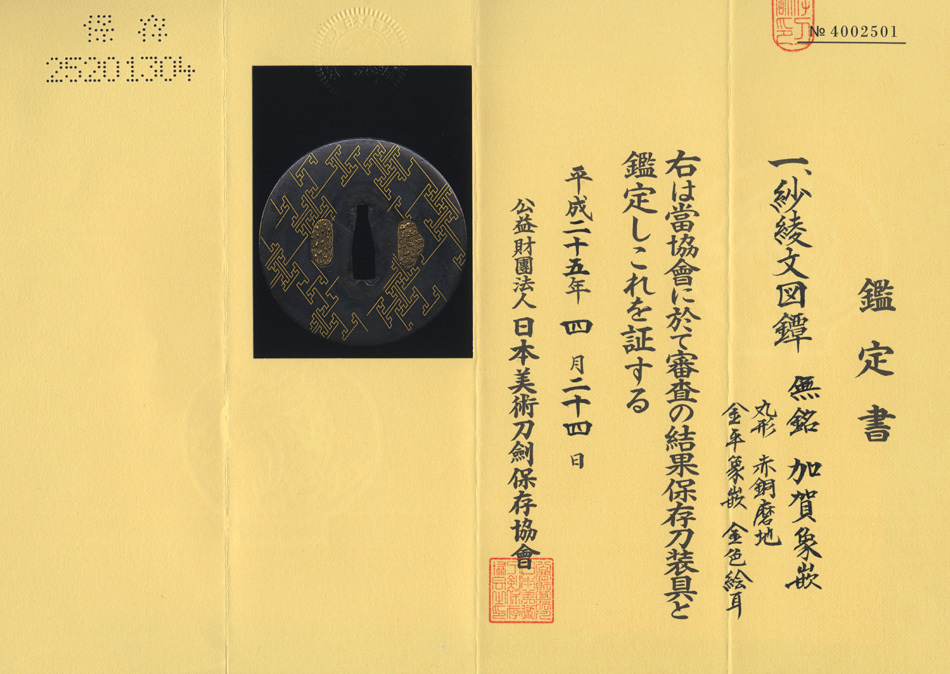 № 4002501
鑑定書
一、紗綾文図鐔 無銘 加賀象嵌
丸形 赤銅磨地
金平象嵌 金色絵耳
右は當協會に於て審査の結果保存刀装具と
鑑定しこれを証する
平成二十五年 四月二十四日
公益財團法人 日本美術刀劍保存協會
保存
25201304